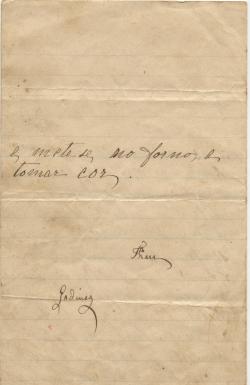 e mete-se, no forno, a
tomar cor.
Godinez